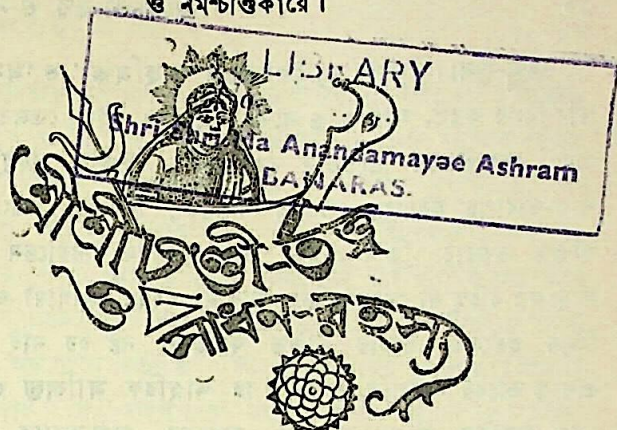 ওঁ নমশ্চণ্ডিকায়ৈ।
LIBRARY
Shri Shri Ma Anandamayee Ashram
BANARAS.
শ্রীশ্রীচণ্ডী-তত্ত্ব
ও সাধন-রহস্য